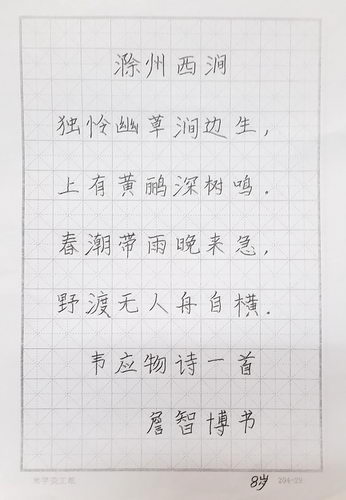 滁州西涧
独怜幽草涧边生,
上有黄鹂深树鸣.
春潮带雨晚来急,
野渡无人舟自横.
韦应物诗一首
詹智博书
8岁 204-29